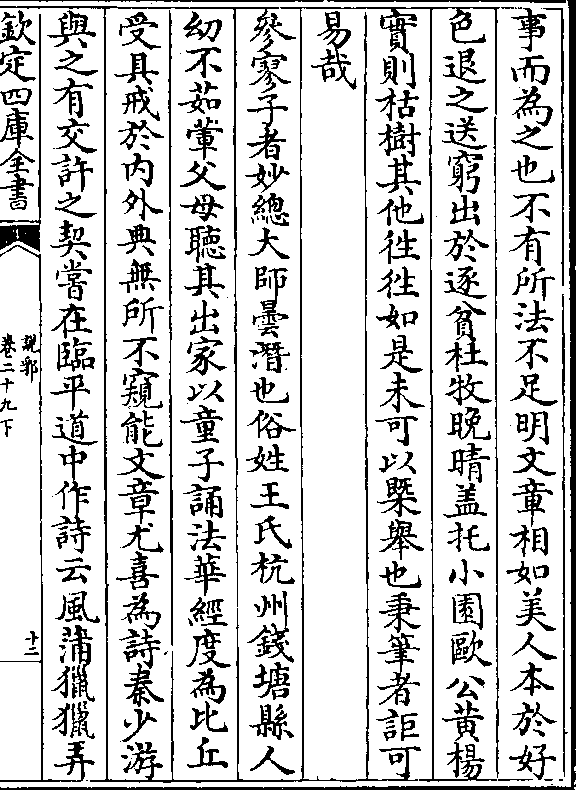 事而為之也不有所法不足明文章相如美人本於好
色退之送窮出於逐貧杜牧晚晴盖托小園歐公黄楊
實則枯樹其他徃徃如是未可以槩舉也秉筆者詎可
易哉
參寥子者妙總大師曇潛也俗姓王氏杭州錢塘縣人
幼不茹葷父母聽其出家以童子誦法華經度為比丘
受具戒於内外典無所不窺能文章尤喜為詩秦少游
與之有交許之契嘗在臨平道中作詩云風蒲獵獵弄
欽定四庫全書
說郛
卷二十九下
十二